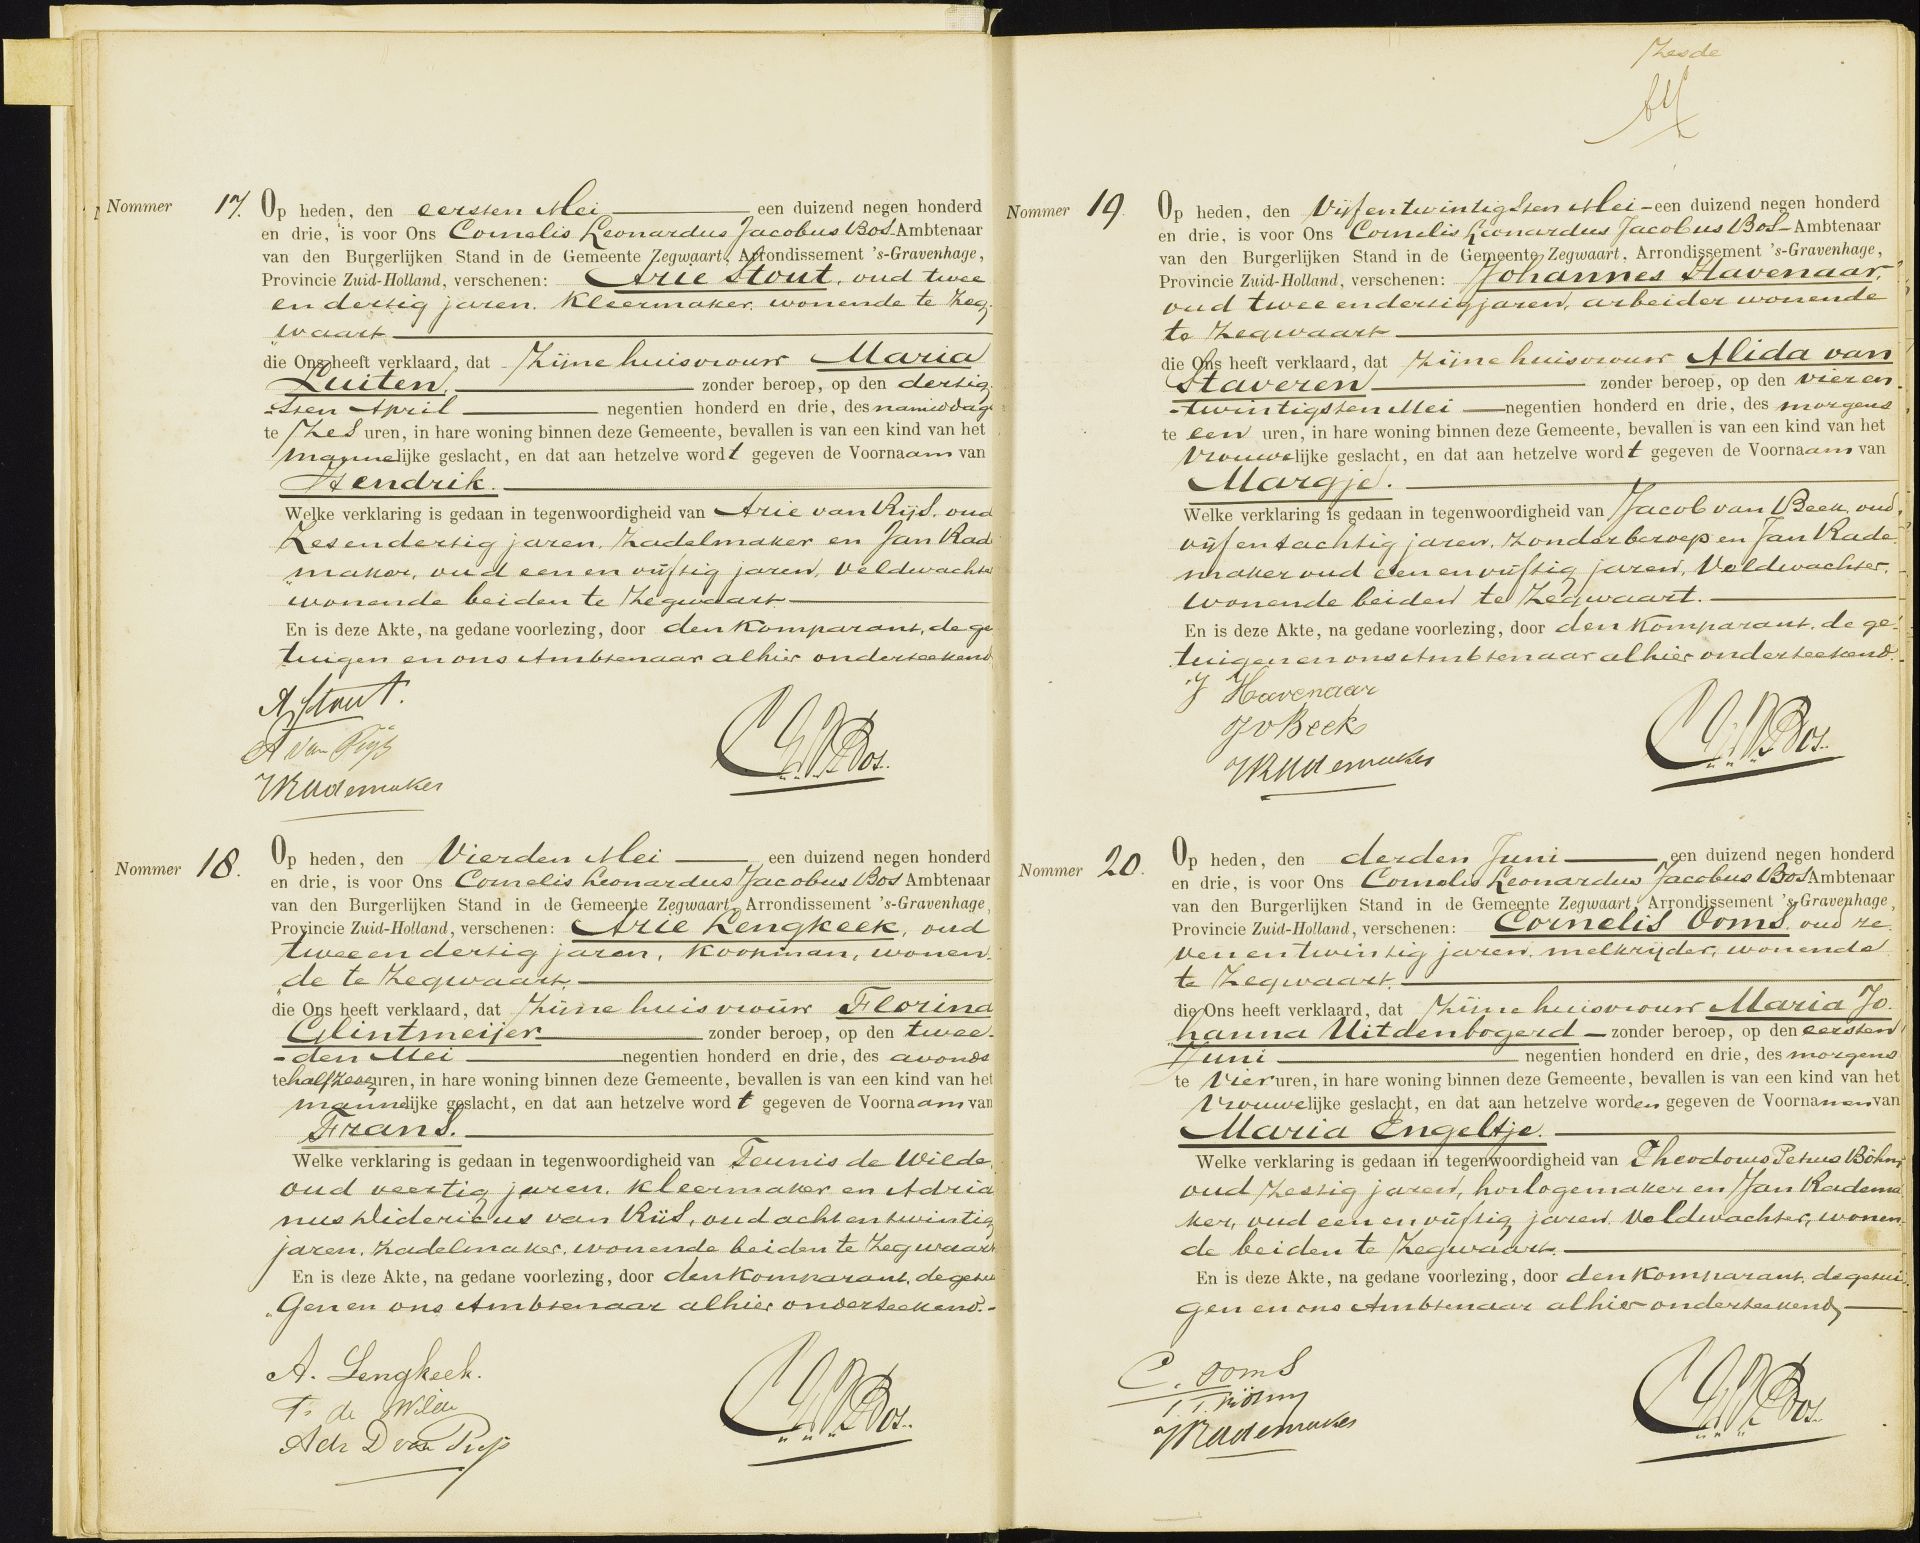 Nommer 17. Op heden, den eersten Mei een duizend negen honderd
en drie, is voor Ons Cornelis Leonardus Jacobus Bos Ambtenaar
van den Burgerlijken Stand in de Gemeente Zegwaart, Arrondissement 's-Gravenhage,
Provincie Zuid-Holland, verschenen: Arie Stout, oud twee
en dertig jaren, kleermaker, wonende te Zeg-
waart
die Ons heeft verklaard, dat Zijne huisvrouw Maria
Luiten, zonder beroep, op den dertig-
sten April negentien honderd en drie, des namiddags
te Zes uren, in hare woning binnen deze Gemeente, bevallen is van een kind van het
mannelijke geslacht, en dat aan hetzelve wordt gegeven de Voornaam van
Hendrik.
Welke verklaring is gedaan in tegenwoordigheid van Arie van Rijs, oud
Zesendertig jaren, Zadelmaker en Jan Rade
maker, oud een en vijftig jaren, Veldwachter
wonende beiden te Zegwaart
En is deze Akte, na gedane voorlezing, door den Komparant, de ge
tuigen en ons Ambtenaar alhier onderteekend
A Stout.
A van Rijs
J Rademaker
C L J Bos.
Nommer 18. Op heden, den Vierden Mei een duizend negen honderd
en drie, is voor Ons Cornelis Leonardus Jacobus Bos Ambtenaar
van den Burgerlijken Stand in de Gemeente Zegwaart, Arrondissement 's-Gravenhage,
Provincie Zuid-Holland, verschenen: Arie Lengkeek, oud
twee en dertig jaren, Koopman, wonen-
de te Zegwaart,
die Ons heeft verklaard, dat Zijne huisvrouw Florina
Glintmeijer zonder beroep, op den twee-
den Mei negentien honderd en drie, des avonds
te half zes uren, in hare woning binnen deze Gemeente, bevallen is van een kind van het
mannelijke geslacht, en dat aan hetzelve wordt gegeven de Voornaam van
Frans.
Welke verklaring is gedaan in tegenwoordigheid van Teunis de Wilde,
oud veertig jaren, kleermaker en Adria
nus Didericus van Rijs, oud acht en twintig
jaren, Zadelmaker, wonende beiden te Zegwaart
En is deze Akte, na gedane voorlezing, door den Komparant, de getui
gen en ons Ambtenaar alhier onderteekend.
A. Lengkeek.
T. de Wilde
Adr D van Rijs
C L J Bos.
Zesde
Nommer 19. Op heden, den Vijf en twintigsten Mei een duizend negen honderd
en drie, is voor Ons Cornelis Leonardus Jacobus Bos Ambtenaar
van den Burgerlijken Stand in de Gemeente Zegwaart, Arrondissement 's-Gravenhage,
Provincie Zuid-Holland, verschenen: Johannes Havenaar,
oud twee en dertig jaren, arbeider wonende
te Zegwaart
die Ons heeft verklaard, dat Zijne huisvrouw Alida van
Staveren zonder beroep, op den vier en
twintigsten Mei negentien honderd en drie, des morgens
te een uren, in hare woning binnen deze Gemeente, bevallen is van een kind van het
vrouwelijke geslacht, en dat aan hetzelve wordt gegeven de Voornaam van
Margje.
Welke verklaring is gedaan in tegenwoordigheid van Jacob van Beek, oud
vijf en tachtig jaren, Zonder beroep en Jan Rade-
maker oud een en vijftig jaren, Veldwachter,
wonende beiden te Zegwaart.
En is deze Akte, na gedane voorlezing, door den Komparant, de ge-
tuigen en ons Ambtenaar alhier onderteekend.
J Havenaar
J v Beek
J Rademaker
C L J Bos.
Nommer 20. Op heden, den derden Juni een duizend negen honderd
en drie, is voor Ons Cornelis Leonardus Jacobus Bos Ambtenaar
van den Burgerlijken Stand in de Gemeente Zegwaart, Arrondissement 's-Gravenhage,
Provincie Zuid-Holland, verschenen: Cornelis Ooms, oud ze-
ven en twintig jaren, melkrijder, wonende
te Zegwaart,
die Ons heeft verklaard, dat Zijne huisvrouw Maria Jo-
hanna Uitdenbogerd zonder beroep, op den eersten
Juni negentien honderd en drie, des morgens
te Vier uren, in hare woning binnen deze Gemeente, bevallen is van een kind van het
Vrouwelijke geslacht, en dat aan hetzelve worden gegeven de Voornamen van
Maria Engeltje.
Welke verklaring is gedaan in tegenwoordigheid van Theodorus Petrus Böhm,
oud Zestig jaren, horlogemaker en Jan Radema
ker, oud een en vijftig jaren, Veldwachter, wonen-
de beiden te Zegwaart.
En is deze Akte, na gedane voorlezing, door den Komparant, de getui-
gen en ons Ambtenaar alhier onderteekend,
C. Ooms
T. P. Böhm
J Rademaker
C L J Bos.